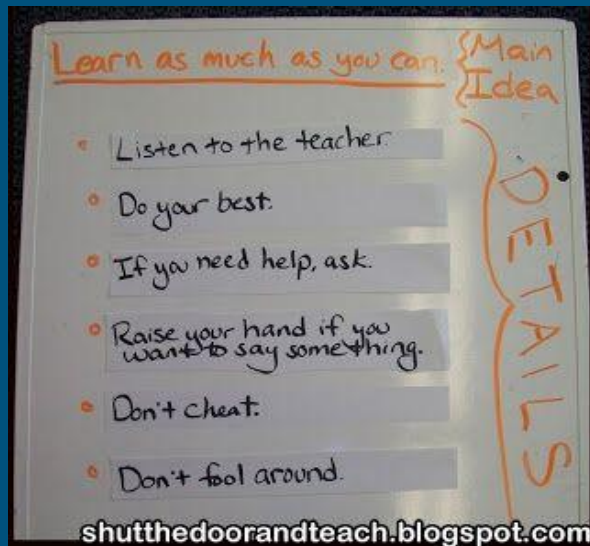 Learn as much as you can.
{Main
{Idea
Listen to the teacher.
Do your best.
If you need help, ask.
Raise your hand if you
want to say something.
Don't cheat.
Don't fool around.
DETAILS
shutthedoorandteach.blogspot.com